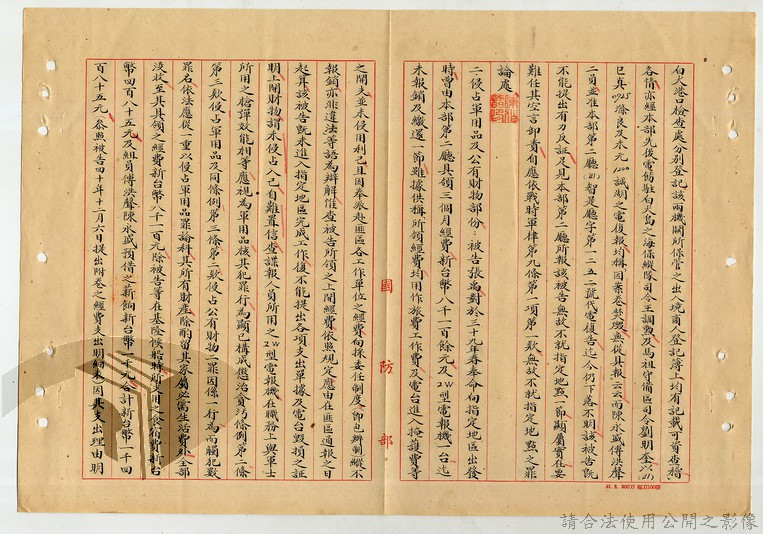 白犬港口檢查處分別登記該兩機關所保管之出入境商人登記簿上均有記載可資查稽
各情亦經本部先後電飭駐白犬島之海保縱隊司令王調勳及馬祖守備區司令劉明奎以(41)
巳真0925滌良及未元1200誠湖之電復報均稱因業卷焚燬無從具報云云而陳永盛傅洪聲
二員並准本部第二廳(41)智是廳字第一二五二號代電復告迄今仍下落不明該被告既
不能提出有力反証足見本部第二廳所報該被告無故不就指定地點一節顯屬實在要
難任其空言卸責自應依戰時軍律第九條第一項第一款無故不就指定地點之罪
論處
二、侵占軍用品及公有財物部份：被告張為對於三十九年春奉命向指定地區出發
時曾由本部第二廳具領三個月經費新台幣八千一百餘元及2W型電報機一台迄
未報銷及繳還一節雖據供稱所領經費均用作旅費工作費及電台進入掩護費等
國防部
之開支並未侵用利己且因奉派赴匪區各工作單位之經費向採委任制度（即包辦制）縱不
報銷亦非違法等語為辯解惟查被告所領之上開經費依照規定應由在匪區通報之日
起算該被告既未進入指定地區完成工作復不能提出各項支出單據及電台毀損之証
明上開財物謂未侵占入己自難置信查諜報人員所用之2W型電報機在職務上與軍士
所用之槍彈效能相等應視為軍用品核其犯行為顯已構成懲治貪污條例第二條
第三款侵占軍用品及同條例第三條第二款侵占公有財物之罪因係一行為而觸犯數
罪名依法應從一重以侵占軍用品罪論科其所有財產除酌留其家屬必需生活費外全部
沒收至其具領之經費新台幣八千一百元除被告等在基隆候船時所支用之食宿費新台
幣四百八十五元及組員傅洪聲陳永盛預借之薪餉新台幣一千元合計新台幣一千四
百八十五元（參照被告四十年十一月六日提出附卷之經費支出明細表）因其支出理由明
41. 8. 3000刀
請合法使用公開之影像